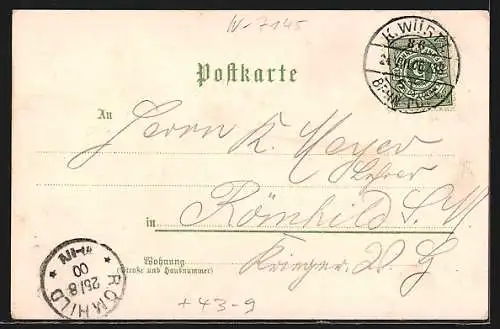 W-7145
K. WÜRT
Postkarte
An
Herrn K. Meyer
Lehrer
in Römhild S. M.
Wohnung
(Straße und Hausnummer)
Krieger
RÖMHILD
25/8
00
+43-9